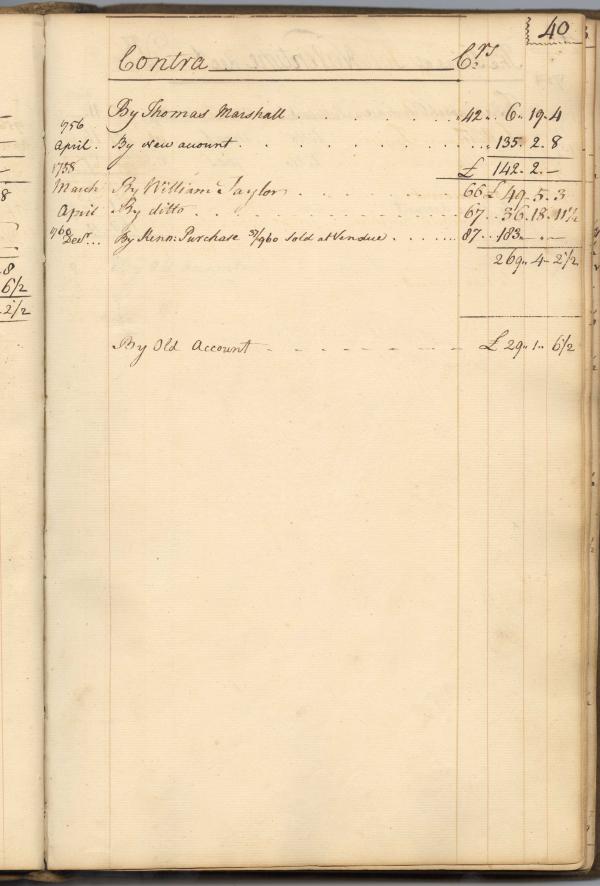 40
Contra Crs
By Thomas Marshall 42 6 19 4
1756
April By New account 135 2 8
1758 £ 142 2 —
March By William Taylor 66 £ 49 5 3
April By ditto 67 36 18 11 1/2
1760
Decr By Kenn: Purchase Sold at Vendue 87 183 — —
269 4 2 1/2
By Old Account £ 29 1 6 1/2
8
8
6 1/2
2 1/2